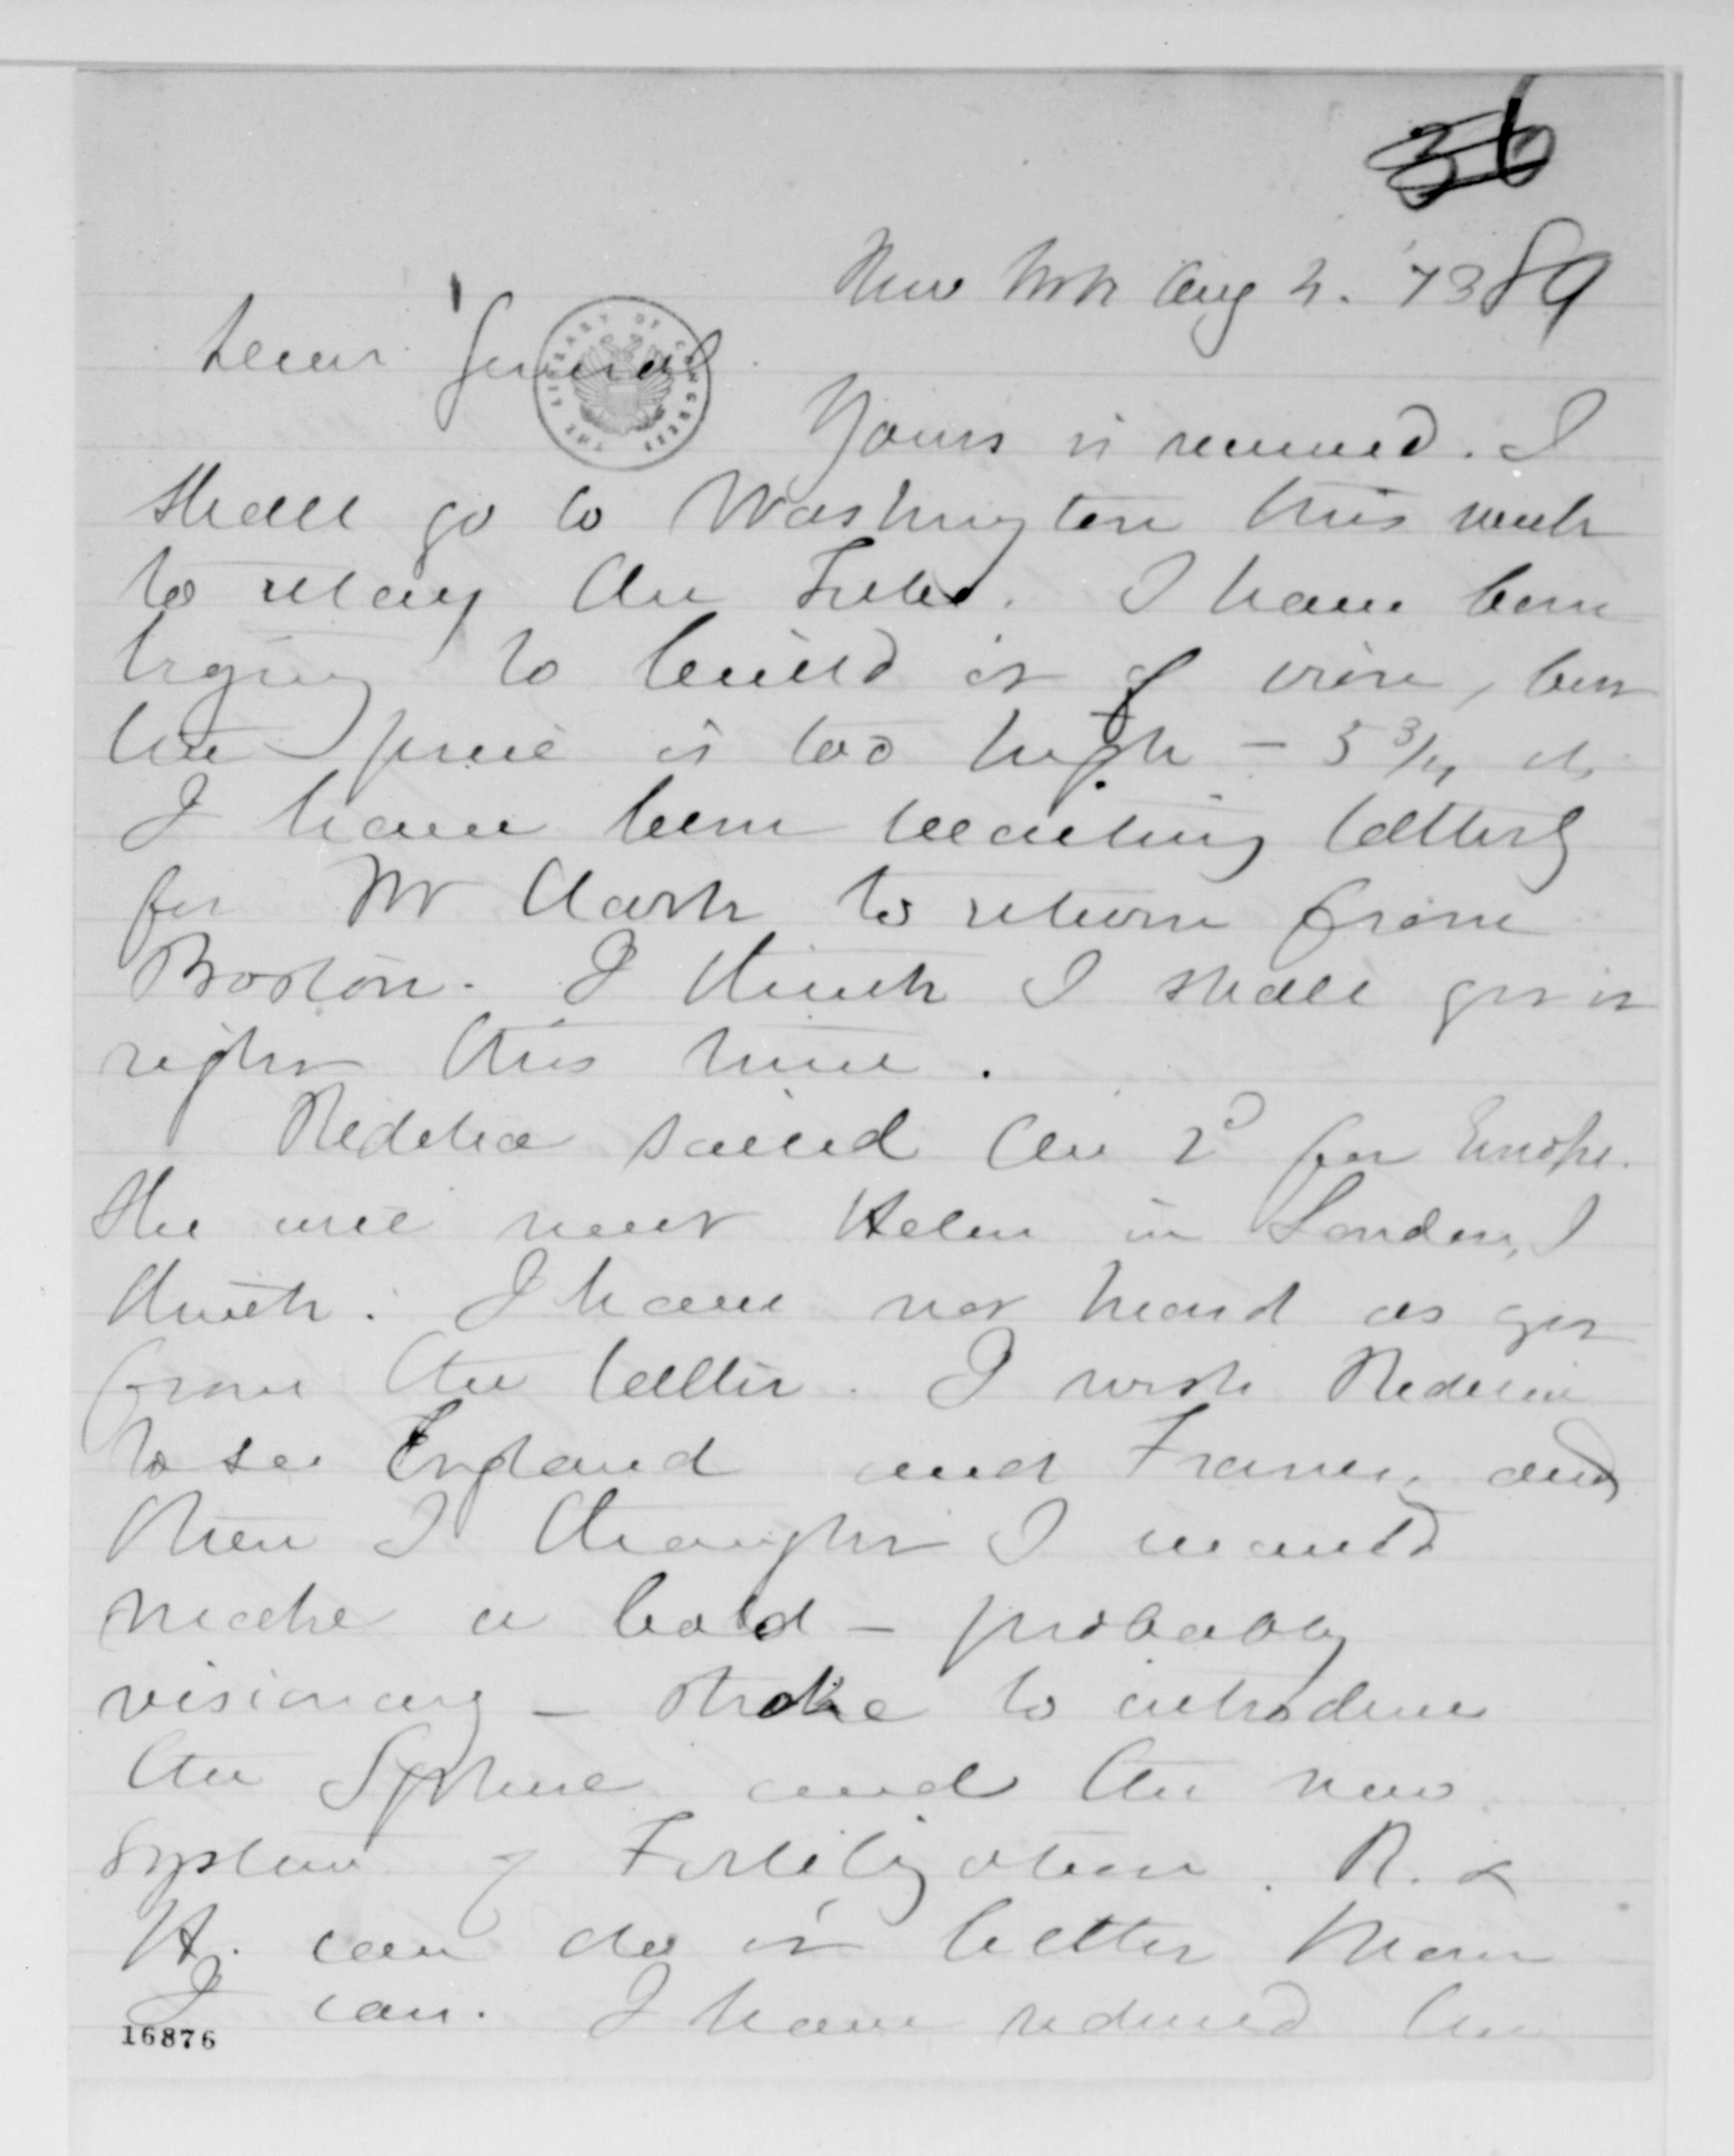 36
New York Aug 2. '73 89
Dear General
THE LIBRARY OF CONGRESS
Yours is received. I
shall go to Washington this week
to relay the Tube. I have been
trying to build it of iron, but
the price is too high — 5 3/4 cts
I have been waiting latterly
for Mr Clark to return from
Boston. I think I shall get it
right this time.
Reddelia sailed the 2d for Europe.
She will meet Helen in London, I
think. I have not heard as yet
from the latter. I wish
to see England and France, and
then I thought I would
make a bold — probably
visionary — stroke to introduce
the Sphere and the new
system of Fertilization. R. &
H. can do it better than
I can. I have reduced the
16876